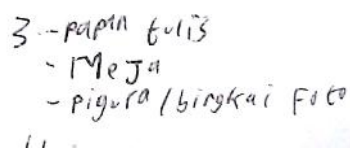 3 - papan tulis
- Meja
- pigura / bingkai Foto